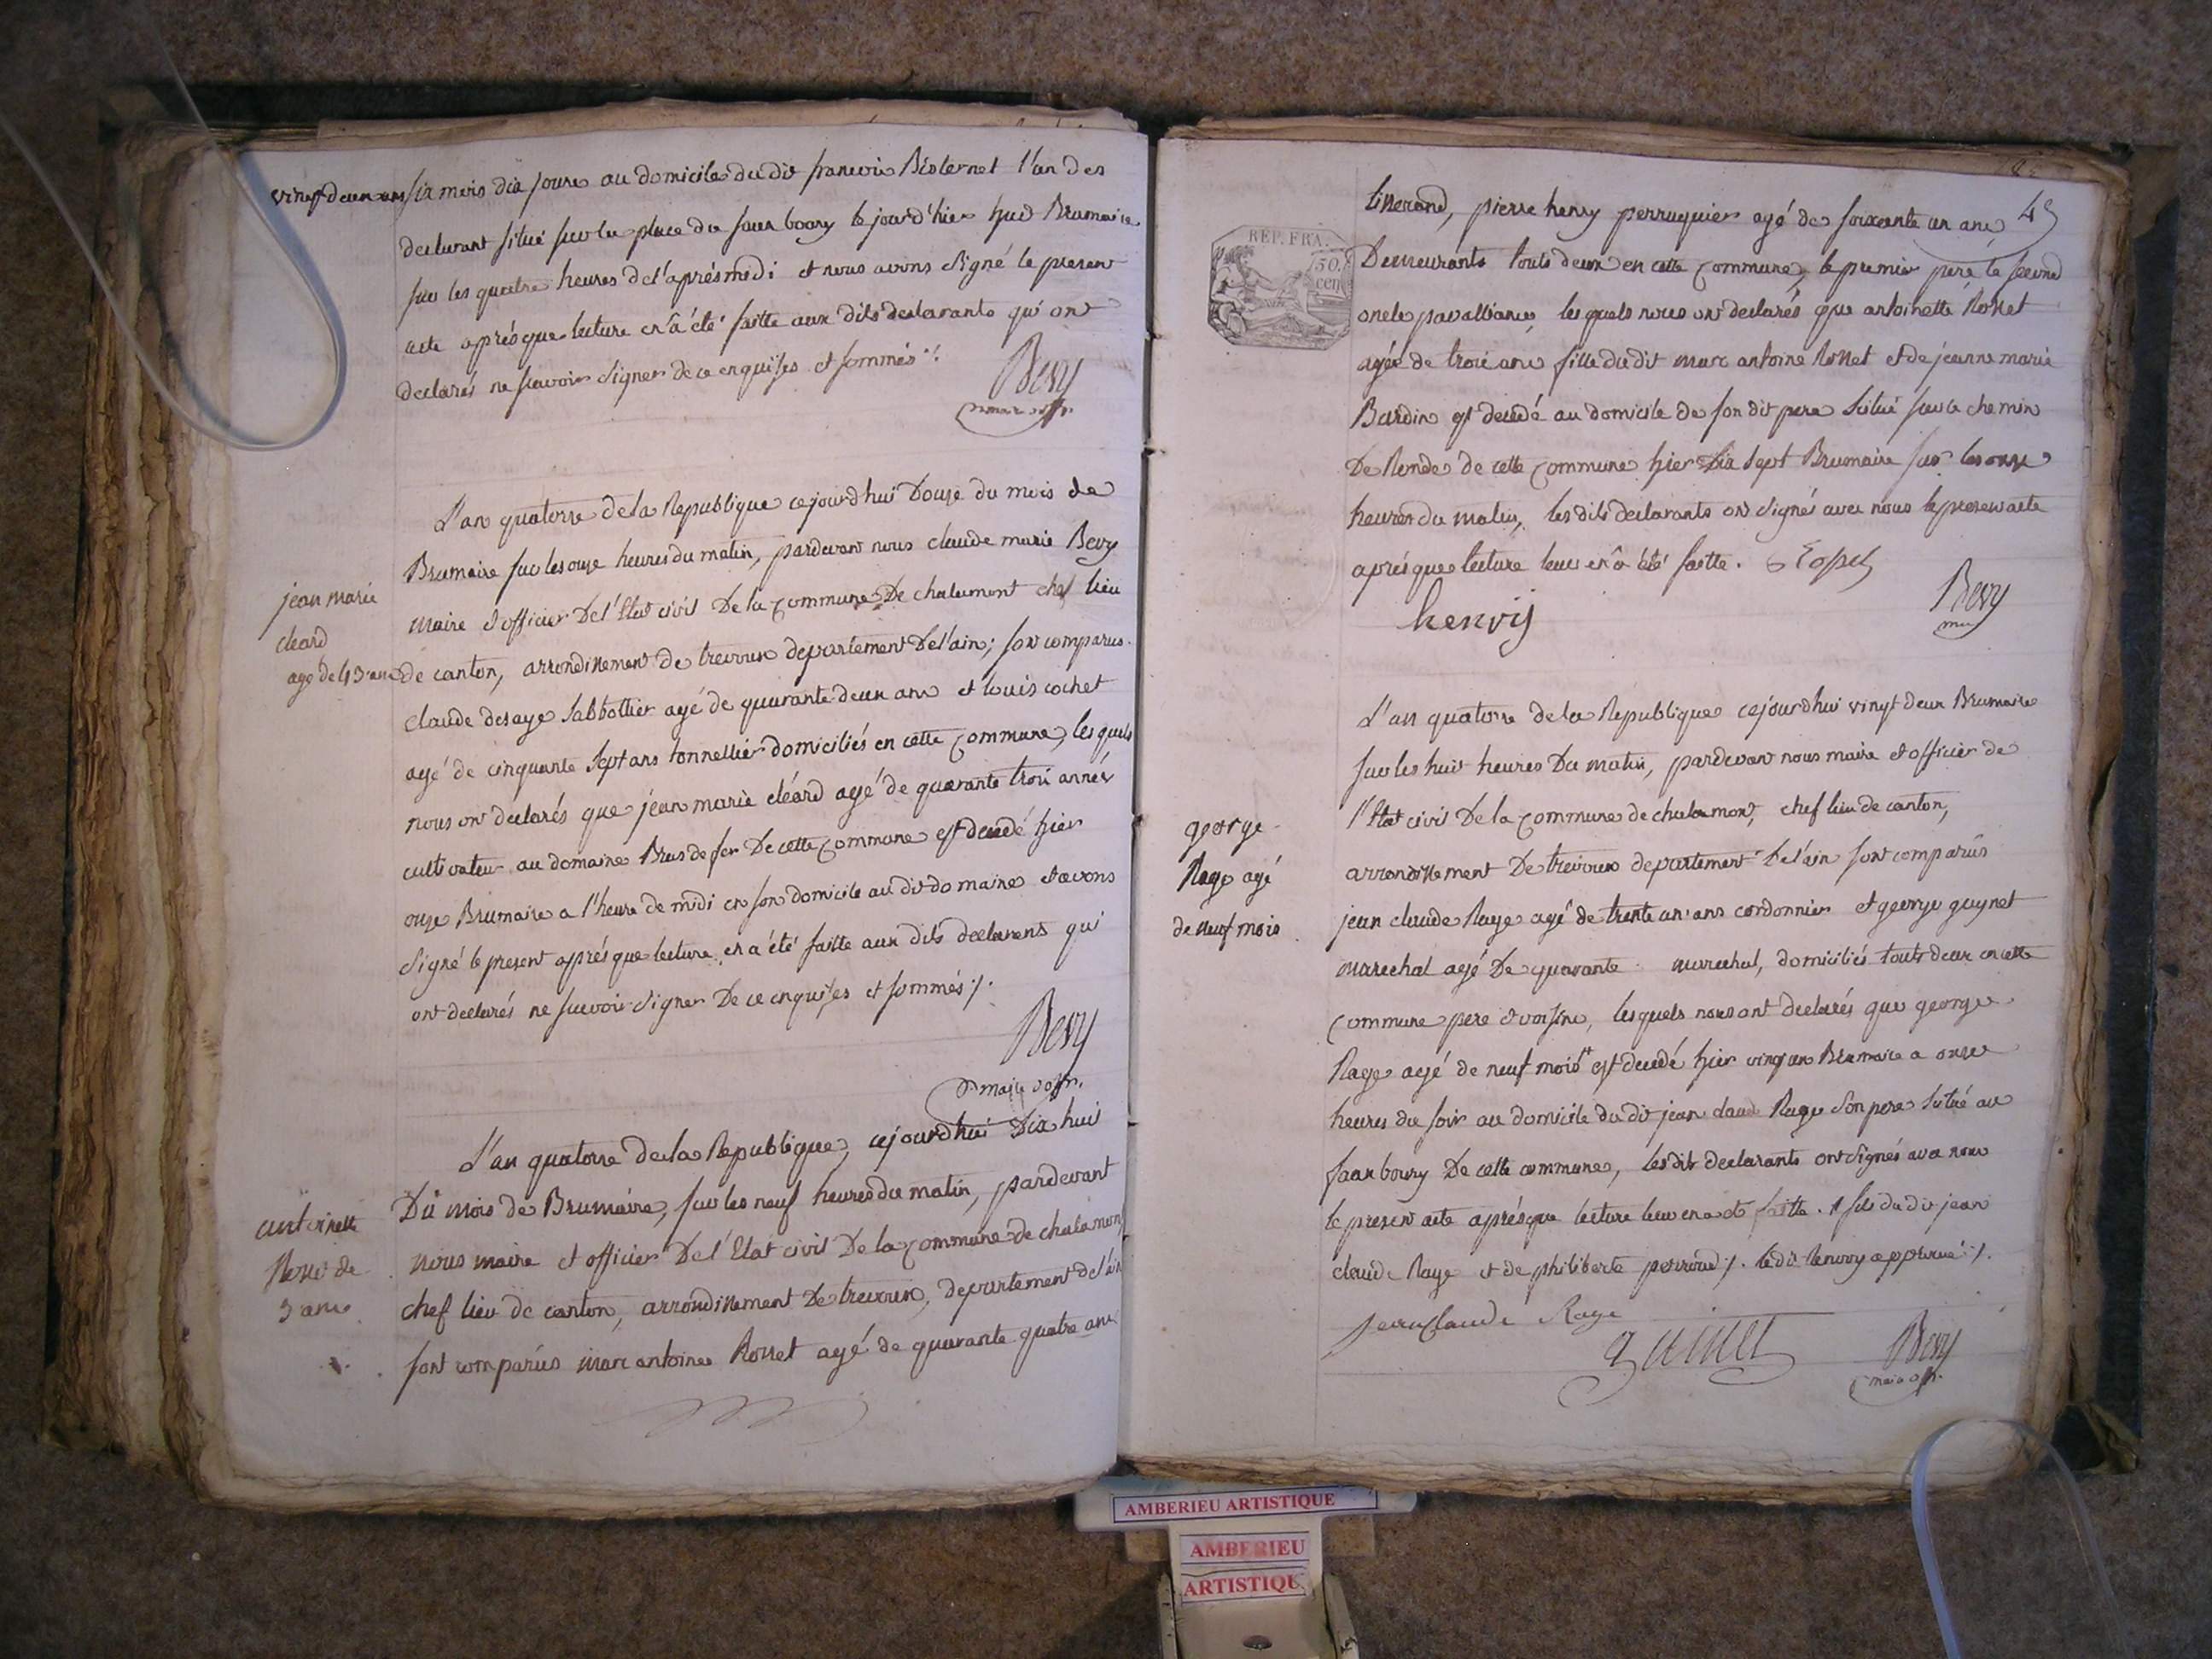 vingt deux ans six mois dix jours au domicile du dit francois Bisternet l'un des
declarant situé sur la place du faux bourg le jour d'hier huit Brumaire
sur les quatre heures del'aprésmidi et nous avons signé le present
acte aprés que lecture en a été faitte aux dits declarants qui ont
declarés ne scavoir signer de ce enquises et sommés ·/.
Bevy
maire offr.
L'an quatorse dela Republique cejourd'hui Douze du mois de
Brumaire sur les onze heures du matin, pardevant nous claude marie Bevy
maire & officier De l'Etat civil De la Commune De chalamont chef lieu
jean marie
cleard
agé de 43 ans
de canton, arrondissement de trevoux departement De l'ain; sont comparus
claude desaye sabbottier agé de quarante deux ans et louis cochet
agé de cinquante sept ans tonnellier domiciliés en cette Commune, les quels
nous ont declarés que jean marie cléard agé de quarante trois années
cultivateur au domaine Bras de fer De cette Commune est decedé hier
onze Brumaire a l'heure de midi en son domicile au dit domaine et avons
signé le present aprés que lecture en a été faitte aux dits declarants qui
ont declarés ne scavoir signer De ce enquises et sommés ·/.
Bevy
maire offr.
L'an quatorse dela Republique, cejourd'hui Dix huit
Du mois de Brumaire, sur les neuf heures du matin, pardevant
antoinette
Rosset de
3 ans
nous maire et officier De l'Etat civil De la Commune de chalamont
chef lieu de canton, arrondissement De trevoux, departement del'ain
sont comparus marc antoine Rosset agé de quarante quatre ans
49
REP. FRA.
50.
cen
tisserand, pierre henry perruquier agé de soixante un ans
Demeurants touts deux en cette Commune, le premier pere le second
oncle par alliance, les quels nous ont declarés que antoinette Rosset
agée de trois ans fille du dit marc antoine Rosset et de jeanne marie
Bardin est decedé au domicile de son dit pere situé sur le chemin
De Ronde de cette Commune hier Dix sept Brumaire sur les onze
heures du matin, les dits declarants ont signés avec nous le present acte
aprés que lecture leur en a été faitte.
henrij
Bevy
L'an quatorse de la Republique cejourd'hui vingt deux Brumaire
sur les huit heures Du matin, pardevant nous maire et officier de
l'Etat civil De la Commune de chalamont, chef lieu de canton,
george
Rage agé
de neuf mois
arrondissement De trevoux departement De l'ain sont comparus
jean claude Rage agé de trente un ans cordonnier et george guynet
marechal agé De quarante marechal, domiciliés touts deux en cette
Commune pere & voisin, les quels nous ont declarés que george
Rage agé de neuf mois est decedé hier vingt un Brumaire a onze
heures du soir au domicile du dit jean claude Rage son pere situé au
faux bourg De cette commune, les dits declarants ont signés avec nous
le present acte aprés que lecture leur en a été faitte. fils du dit jean
claude Rage et de philiberte perroud ·/. le dit renvoy approuvé ·/.
jean claude Rage
guinet
Bevy
maire offr.
AMBERIEU ARTISTIQUE
AMBERIEU
ARTISTIQU